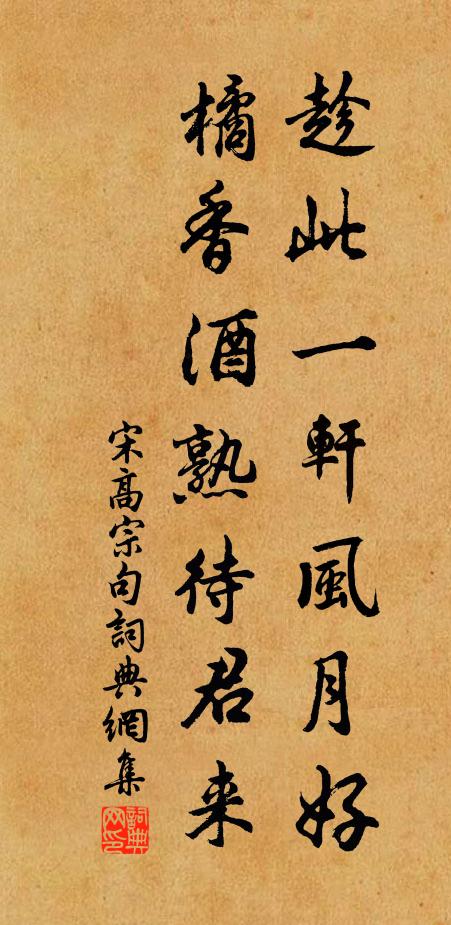 趁此一軒風月好
橘香酒熟待君来
宋高宗句詞典網集
詞典網印